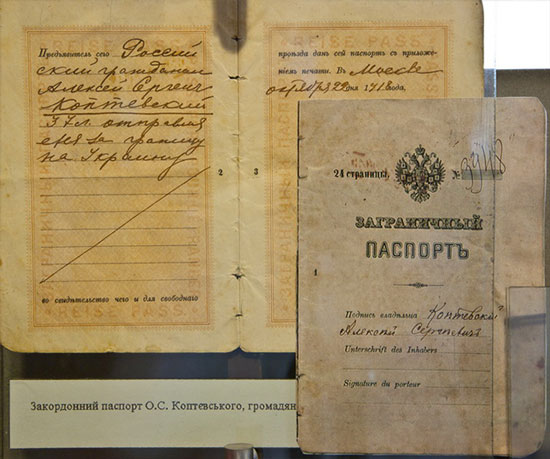 REISE-PASS
Предъявитель сего Россий
ский гражданин
Алексей Сергеич
Коптевский
37 л. отправля
ется за границу
на Украину
во свидѣтельство чего и для свободнаго
REISE-PASS
2
3
проѣзда данъ сей паспортъ съ приложе-
ніемъ печати. Въ Москве
октября 22 дня 1918 года,
24 страницы.
№
ЗАГРАНИЧНЫЙ
ПАСПОРТЪ
1
Подпись владѣльца Коптевский
Алексѣй Сергѣевичъ
Unterschrift des Inhabers
Signature du porteur
Закордонний паспорт О.С. Коптевського, громадян